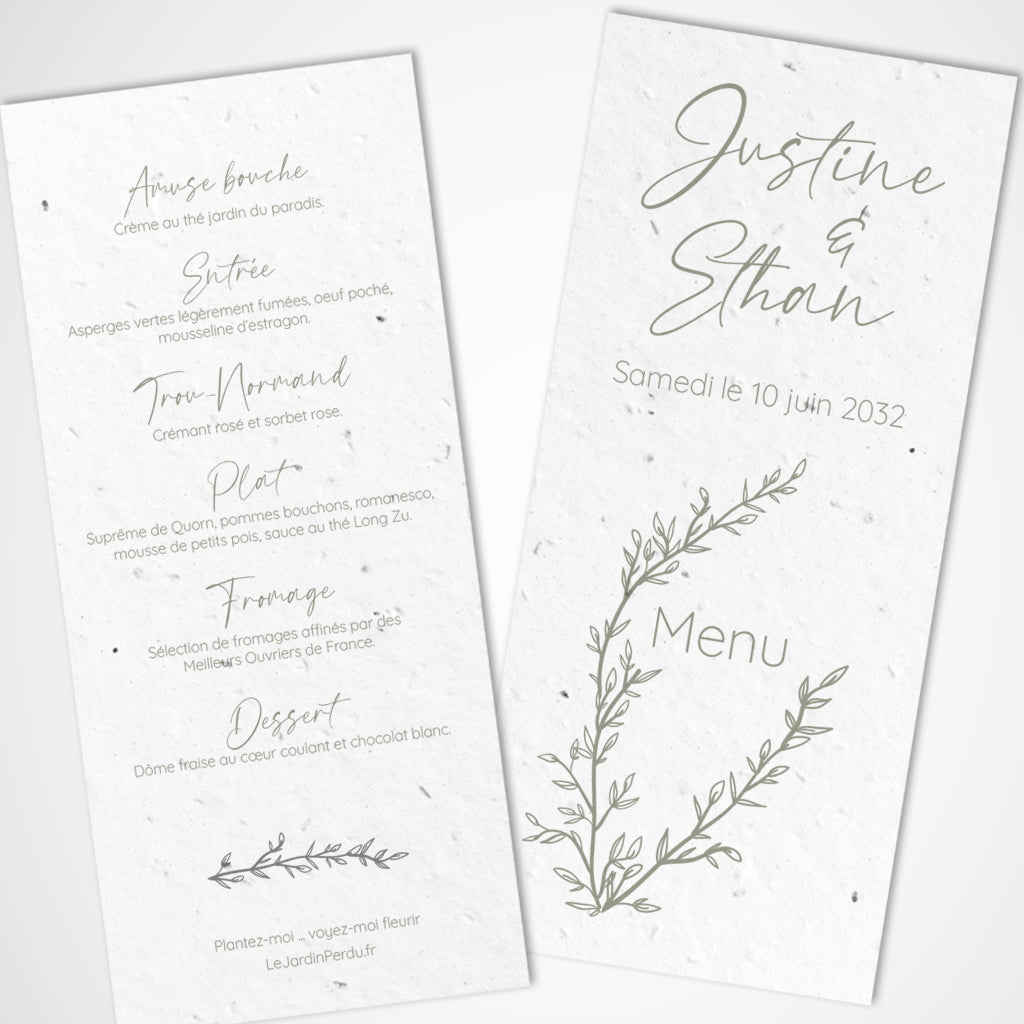 Amuse bouche
Crème au thé jardin du paradis.
Entrée
Asperges vertes légèrement fumées, oeuf poché,
mousseline d'estragon.
Trou-Normand
Crémant rosé et sorbet rose.
Plat
Suprême de Quorn, pommes bouchons, romanesco,
mousse de petits pois, sauce au thé Long Zu.
Fromage
Sélection de fromages affinés par des
Meilleurs Ouvriers de France.
Dessert
Dôme fraise au cœur coulant et chocolat blanc.
Plantez-moi ... voyez-moi fleurir
LeJardinPerdu.fr
Justine
&
Ethan
Samedi le 10 juin 2032
Menu